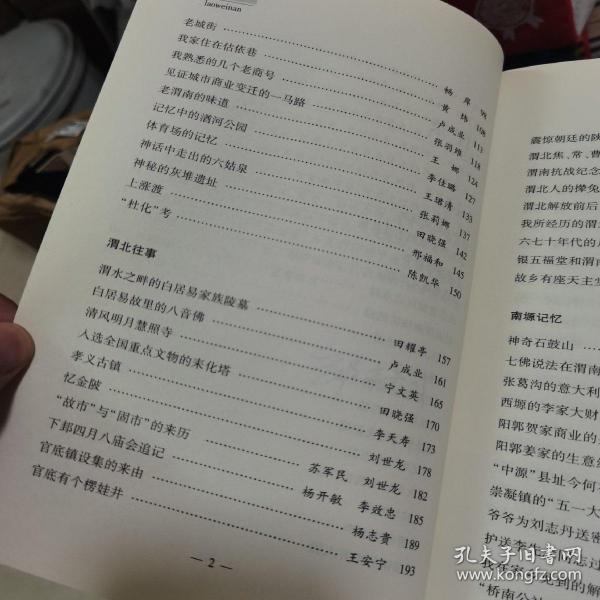 laoweinan
老城街 杨
我家住在估依巷 黄炜 106
我熟悉的几个老商号 卢成业 113
见证城市商业变迁的一马路 张羽雄 118
老渭南的味道 王娜 124
记忆中的湭河公园 李仕璐 127
体育场的记忆 王珺清 133
神话中走出的六姑泉 张莉娜 137
神秘的灰堆遗址 田晓强 142
上涨渡 邢福和 145
“杜化”考 陈凯华 150
渭北往事
渭水之畔的白居易家族陵墓 田耀亭 157
白居易故里的八音佛 卢成业 161
清风明月慧照寺 宁文英 165
入选全国重点文物的耒化塔 田晓强 170
孝义古镇 李天寿 173
忆金陂 刘世龙 178
“故市”与“固市”的来历 苏军民 刘世龙 182
下邽四月八庙会追记 杨开敏 李效忠 185
官底镇设集的来由 杨志贵 189
官底有个楞娃井 王安宁 193
— 2 —
震惊朝廷的陕
渭北焦、常、曹
渭南抗战纪念
渭北人的
渭北解放前后
我所经历的渭
六七十年代的
银五福堂和渭南
故乡有座天主堂
南塬记忆
神奇石鼓山
七佛说法在渭南
张葛沟的意大利
西塬的李家大财
阳郭贺家商业的
阳郭姜家的生意
“中源”县址今何
崇凝镇的“五一大
爷爷为刘志丹送密
护送李先
到的解
“桥南公社
孔夫子旧书网
www.kongfz.com